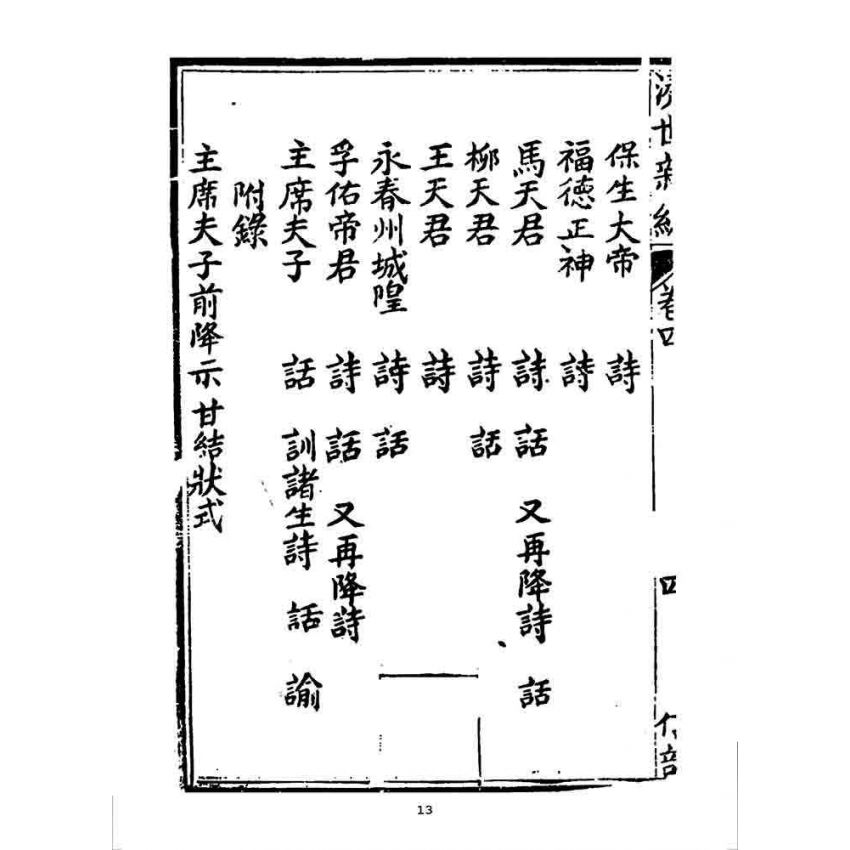 保生大帝 詩
福德正神 詩
馬天君 詩 話 又再降詩 話
柳天君 詩 話
王天君 詩
永春州城隍 詩 話
孚佑帝君 詩 話 又再降詩
主席夫子 話 訓諸生詩 話 諭
附錄
主席夫子前降示甘結狀式
世新
卷四
四
13